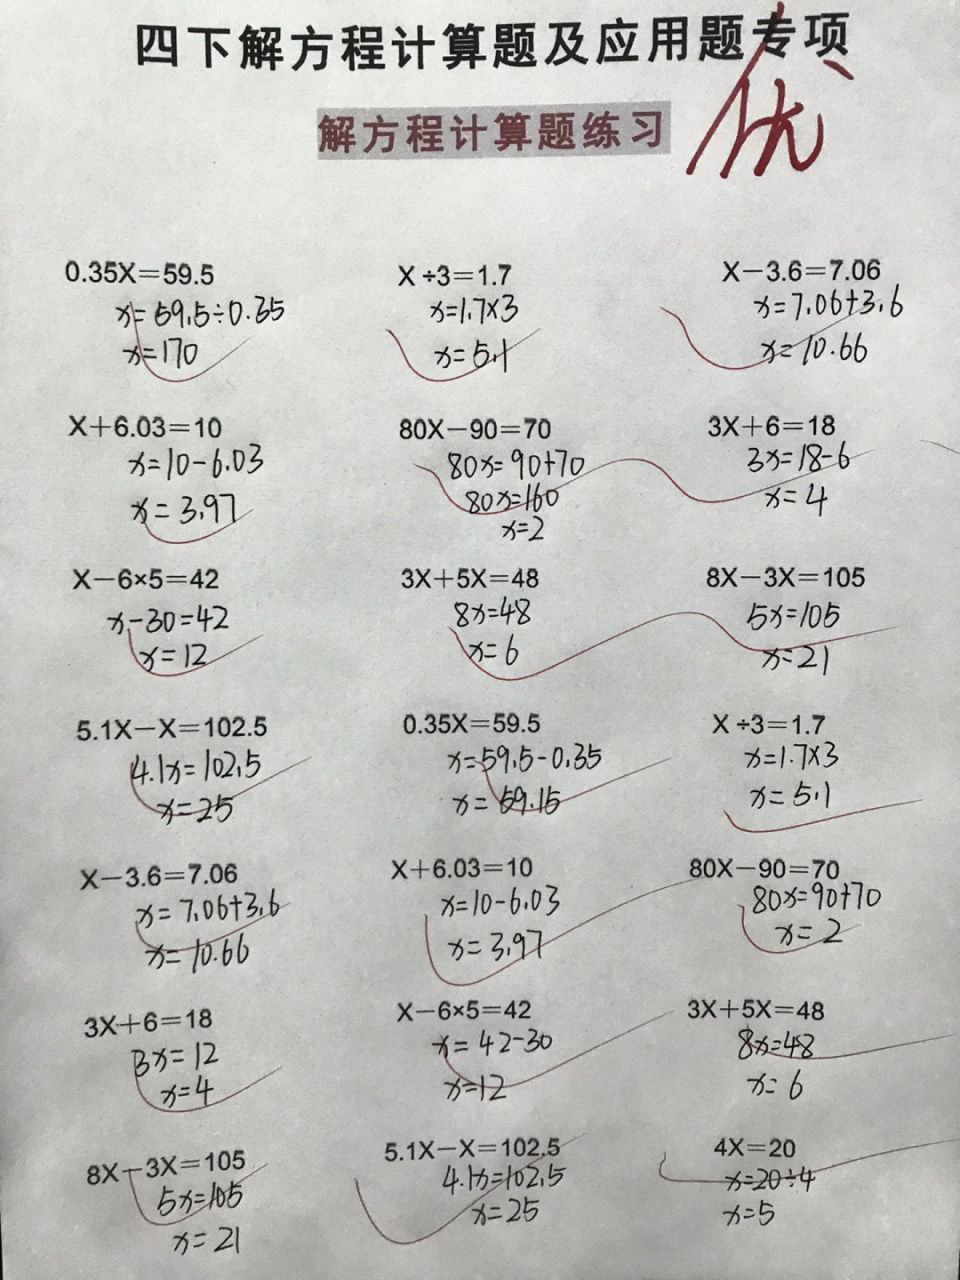 四下解方程计算题及应用题专项
优
解方程计算题练习
0.35X=59.5
x=59.5÷0.35
x=170
X÷3=1.7
x=1.7×3
x=5.1
X-3.6=7.06
x=7.06+3.6
x=10.66
X+6.03=10
x=10-6.03
x=3.97
80X-90=70
80x=90+70
80x=160
x=2
3X+6=18
3x=18-6
x=4
X-6×5=42
x-30=42
x=12
3X+5X=48
8x=48
x=6
8X-3X=105
5x=105
x=21
5.1X-X=102.5
4.1x=102.5
x=25
0.35X=59.5
x=59.5-0.35
x=59.15
X÷3=1.7
x=1.7×3
x=5.1
X-3.6=7.06
x=7.06+3.6
x=10.66
X+6.03=10
x=10-6.03
x=3.97
80X-90=70
80x=90+70
x=2
3X+6=18
3x=12
x=4
X-6×5=42
x=42-30
x=12
3X+5X=48
8x=48
x=6
8X-3X=105
5x=105
x=21
5.1X-X=102.5
4.1x=102.5
x=25
4X=20
x=20÷4
x=5